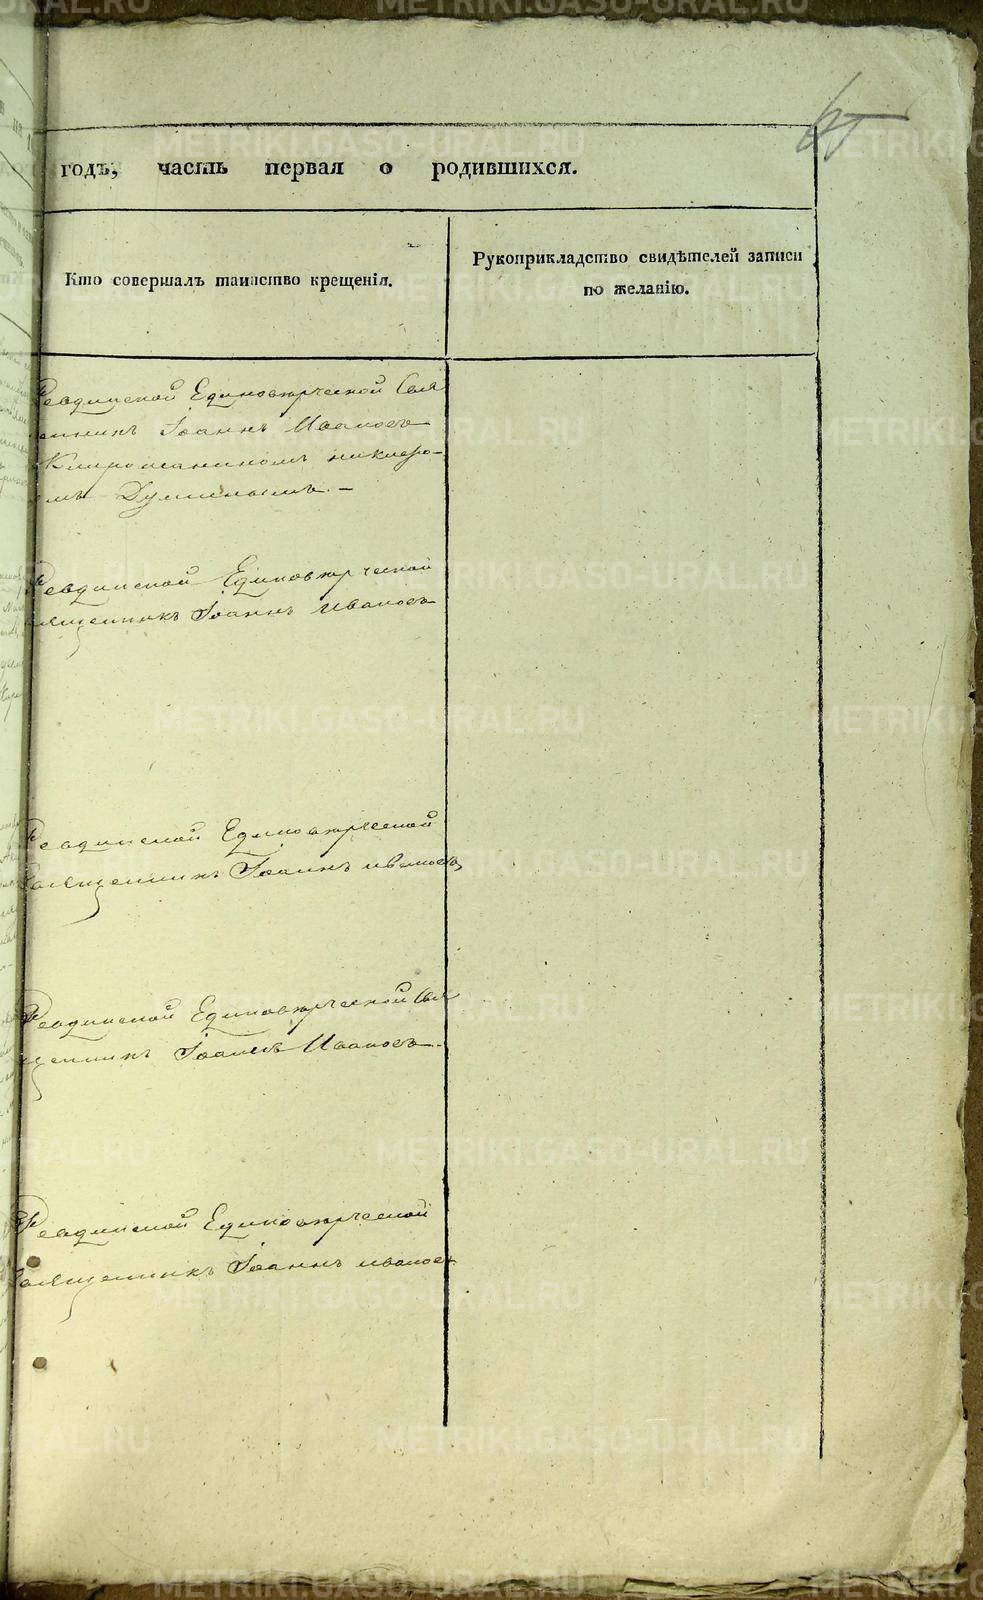 годъ, часть первая о родившихся.
Кто совершалъ таинство крещенія.
Рукоприкладство свидѣтелей записи
по желанію.
Ревдинской Единовѣрческой Свя
щенникъ Іоаннъ Ивановъ

Ревдинской Единовѣрческой
Священникъ Іоаннъ Ивановъ
Ревдинской Единовѣрческой
Священникъ Іоаннъ Ивановъ
Ревдинской Единовѣрческой Свя
щенникъ Іоаннъ Ивановъ
Ревдинской Единовѣрческой
Священникъ Іоаннъ Ивановъ
METRIKI.GASO-URAL.RU